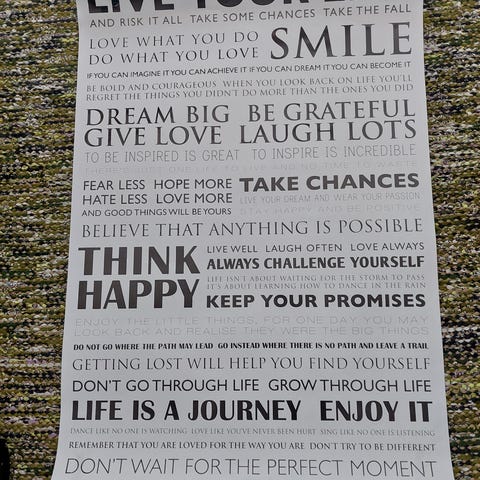 LIVE YOUR
AND RISK IT ALL TAKE SOME CHANCES TAKE THE FALL
LOVE WHAT YOU DO
DO WHAT YOU LOVE SMILE
IF YOU CAN IMAGINE IT YOU CAN ACHIEVE IT IF YOU CAN DREAM IT YOU CAN BECOME IT
BE BOLD AND COURAGEOUS WHEN YOU LOOK BACK ON LIFE YOU'LL
REGRET THE THINGS YOU DIDN'T DO MORE THAN THE ONES YOU DID
DREAM BIG BE GRATEFUL
GIVE LOVE LAUGH LOTS
TO BE INSPIRED IS GREAT TO INSPIRE IS INCREDIBLE
THERE'S JUST ONE LIFE TO LIVE AND NO TIME TO WASTE
FEAR LESS HOPE MORE TAKE CHANCES
HATE LESS LOVE MORE LIVE YOUR DREAM AND WEAR YOUR PASSION
AND GOOD THINGS WILL BE YOURS STAY HAPPY AND BE POSITIVE
BELIEVE THAT ANYTHING IS POSSIBLE
THINK HAPPY
LIVE WELL LAUGH OFTEN LOVE ALWAYS
ALWAYS CHALLENGE YOURSELF
LIFE ISN'T ABOUT WAITING FOR THE STORM TO PASS
IT'S ABOUT LEARNING HOW TO DANCE IN THE RAIN
KEEP YOUR PROMISES
ENJOY THE LITTLE THINGS, FOR ONE DAY YOU MAY
LOOK BACK AND REALISE THEY WERE THE BIG THINGS
DO NOT GO WHERE THE PATH MAY LEAD GO INSTEAD WHERE THERE IS NO PATH AND LEAVE A TRAIL
GETTING LOST WILL HELP YOU FIND YOURSELF
DON'T GO THROUGH LIFE GROW THROUGH LIFE
LIFE IS A JOURNEY ENJOY IT
DANCE LIKE NO ONE IS WATCHING LOVE LIKE YOU'VE NEVER BEEN HURT SING LIKE NO ONE IS LISTENING
REMEMBER THAT YOU ARE LOVED FOR THE WAY YOU ARE DON'T TRY TO BE DIFFERENT
DON'T WAIT FOR THE PERFECT MOMENT